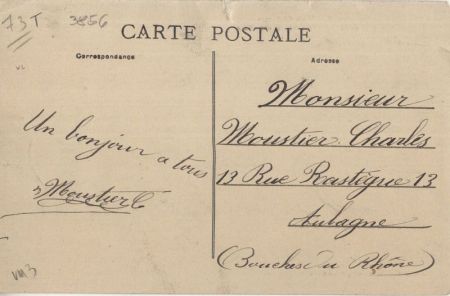 73T 3856
CARTE POSTALE
Correspondance
Adresse
Un bonjour a tous
Moustier
Monsieur
Moustier Charles
13 Rue Rastègue 13
Aubagne
(Bouches du Rhône)
VM3